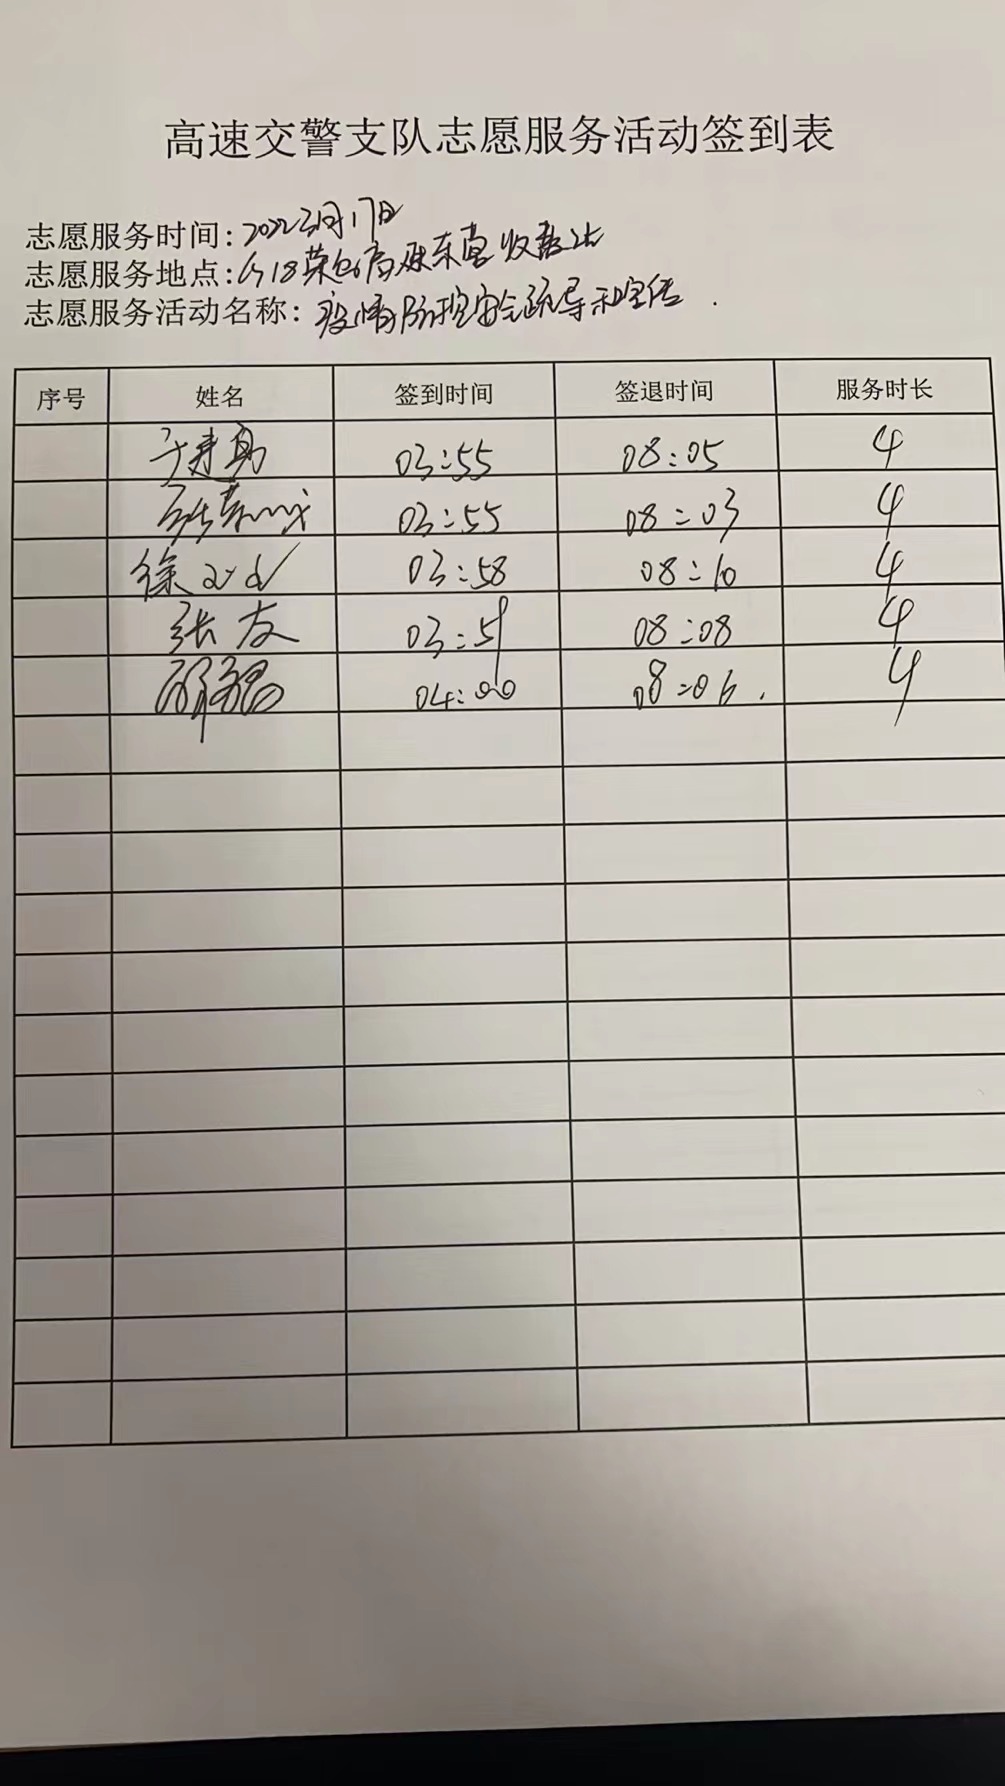 高速交警支队志愿服务活动签到表
志愿服务时间：2022年3月17日
志愿服务地点：G18荣乌高速东营收费站
志愿服务活动名称：疫情防控安全疏导和宣传
序号 姓名 签到时间 签退时间 服务时长
03:55 08:05 4
03:55 08:03 4
徐 03:58 08:10 4
张友 03:59 08:08 4
04:00 08:06 4